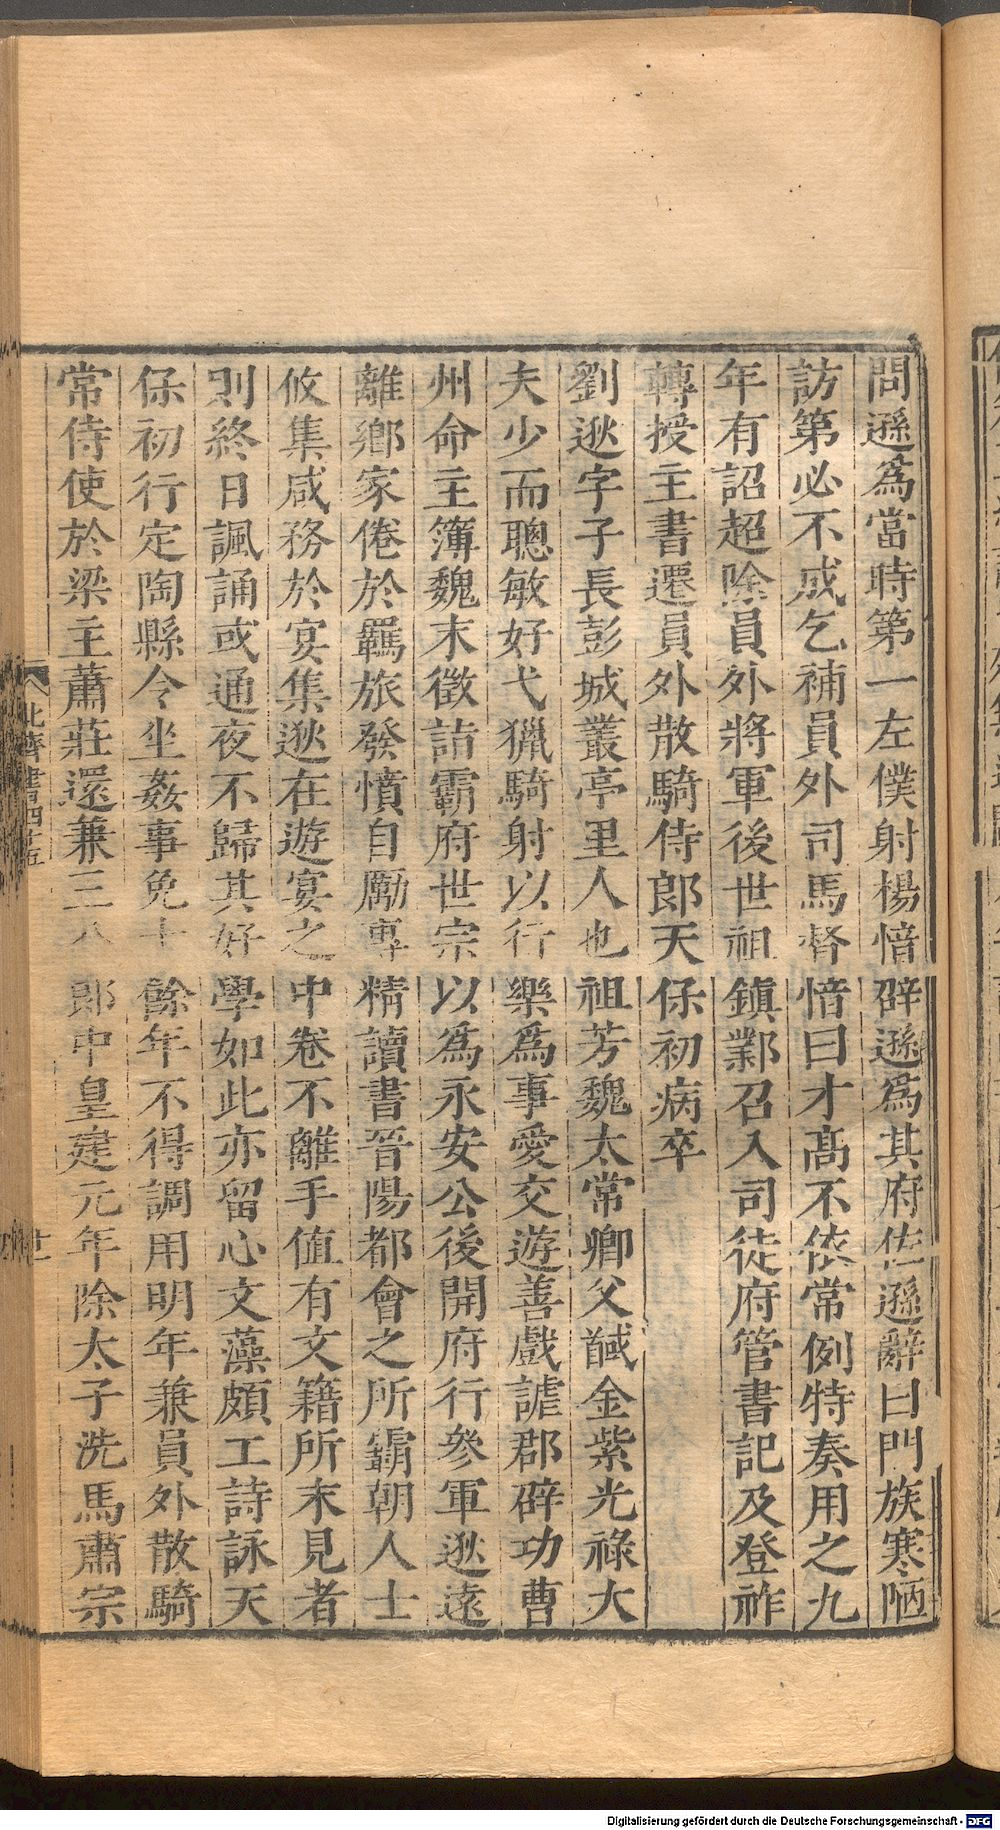 問遜爲當時第一左僕射楊愔辟遜爲其府佐遜辭曰門族寒陋
訪第必不成乞補員外司馬督愔曰才髙不依常例特奏用之九
年有詔超除員外將軍後世祖鎮鄴召入司徒府管書記及登祚
轉授主書遷員外散騎侍郎天保初病卒
劉逖字子長彭城叢亭里人也祖芳魏太常卿父馘金紫光祿大
夫少而聰敏好弋獵騎射以行樂爲事愛交遊善戲謔郡辟功曹
州命主簿魏末徵詣霸府世宗以爲永安公後開府行參軍逖遠
離鄉家倦於羈旅發憤自勵專精讀書晉陽都會之所霸朝人士
攸集咸務於宴集逖在遊宴之中卷不離手值有文籍所未見者
則終日諷誦或通夜不歸其好學如此亦留心文藻頗工詩詠天
保初行定陶縣令坐姦事免十餘年不得調用明年兼員外散騎
常侍使於梁主蕭莊還兼三八郎中皇建元年除太子洗馬肅宗
北齊書四十五
廿
Digitalisierung gefördert durch die Deutsche Forschungsgemeinschaft - DFG